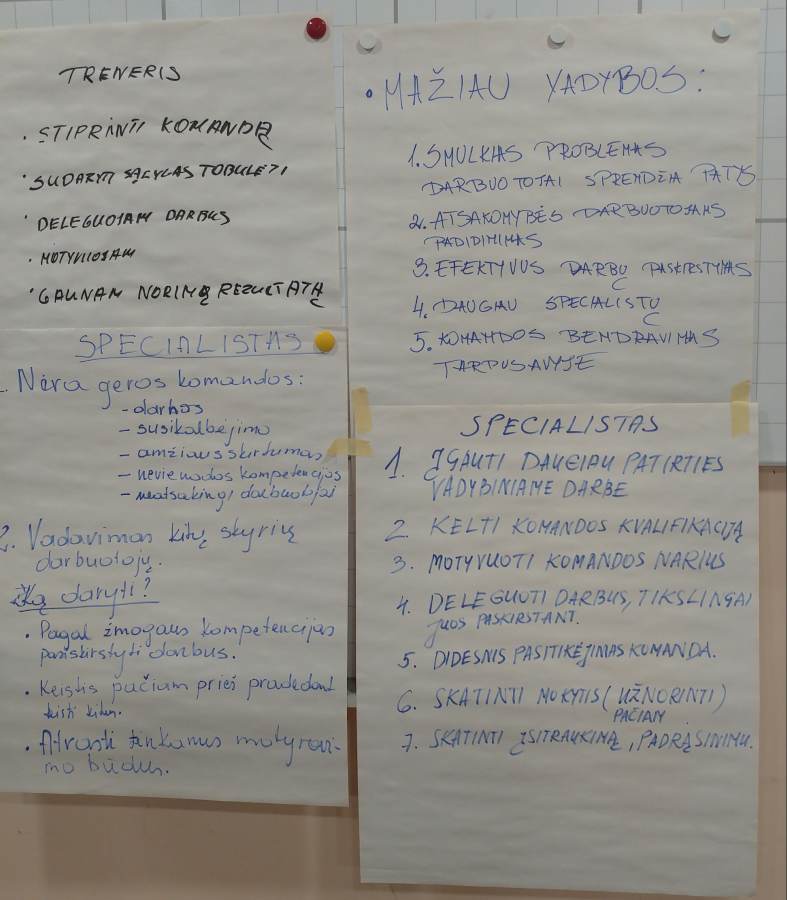 TRENERIS
• STIPRINTI KOMANDĄ
• SUDARYTI SĄLYGAS TOBULĖTI
• DELEGUOJAM DARBUS
• MOTYVUOJAM
• GAUNAM NORIMĄ REZULTATĄ
SPECIALISTAS
1. Nėra geros komandos:
- darbas
- susikalbėjimo
- amžiaus skirtumas
- nevienodos kompetencijos
- neatsakingi darbuotojai
2. Vadavimas kitų skyrių
darbuotojų.
Ką daryti?
• Pagal žmogaus kompetencijas
pasiskirstyti darbus.
• Keistis pačiam prieš pradedant
keisti kitus.
• Atrasti tinkamus motyvavi-
mo būdus.
• MAŽIAU VADYBOS:
1. SMULKIAS PROBLEMAS
DARBUOTOJAI SPRENDŽIA PATYS
2. ATSAKOMYBĖS DARBUOTOJAMS
PADIDINIMAS
3. EFEKTYVUS DARBŲ PASKIRSTYMAS
4. DAUGIAU SPECIALISTŲ
5. KOMANDOS BENDRAVIMAS
TARPUSAVYJE
SPECIALISTAS
1. ĮGAUTI DAUGIAU PATIRTIES
VADYBINIAME DARBE
2. KELTI KOMANDOS KVALIFIKACIJĄ
3. MOTYVUOTI KOMANDOS NARIUS
4. DELEGUOTI DARBUS, TIKSLINGAI
JUOS PASKIRSTANT.
5. DIDESNIS PASITIKĖJIMAS KOMANDA.
6. SKATINTI MOKYTIS (UŽNORINTI)
PAČIAM
7. SKATINTI ĮSITRAUKIMĄ, PADRĄSINIMU.